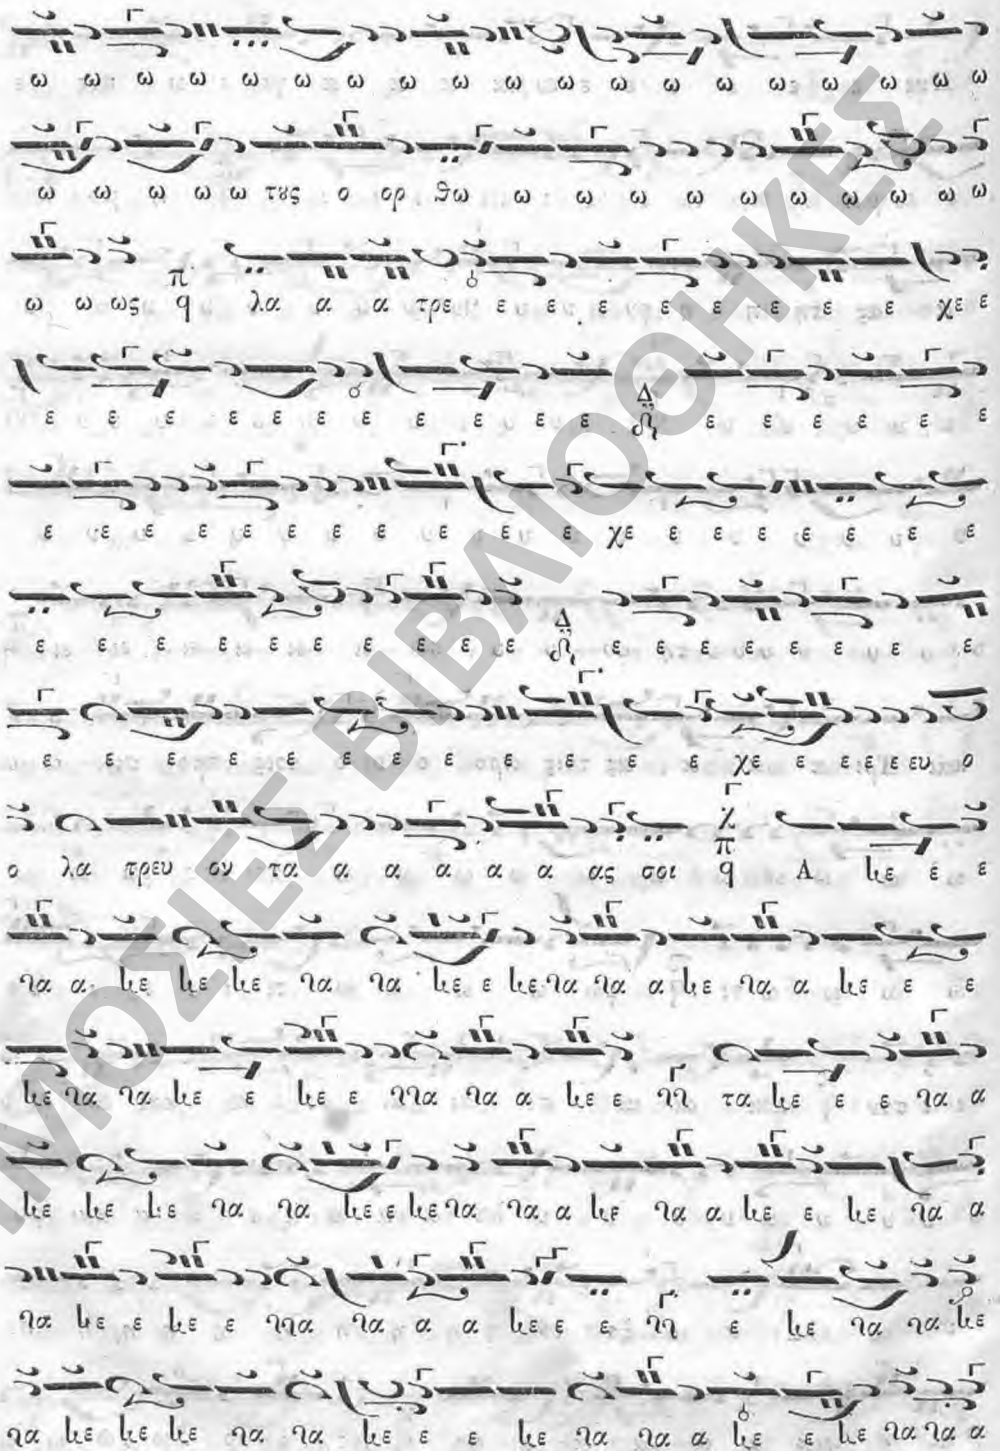 ω ω ω ω ω ω ω ω ω ω ω ω ω ω ω ω ω ω
ω ω ω ω ω τȣς ο ορ θω ω ω ω ω ω ω ω ω ω ω
ω ω ως π q λα α α τρε ε ε ε ε ε ε ε ε ε χε ε
ε ε ε ε ε ε ε ε ε ε ε Δ ε ε ε ε ε ε
ε ε ε ε ε ε ε ε ε ε ε χε ε ε ε ε ε ε ε ε
ε ε ε ε ε ε ε ε ε ε Δ ε ε ε ε ε ε ε ε
ε ε ε ε ε ε ε ε ε ε ε ε χε ε ε ε ε ευ ο
ο λα τρευ ον τα α α α α α ας σοι χ π q Α κε ε ε
να α κε κε κε να να κε ε κε να να α κε να α κε ε ε
κε να να κε ε κε ε ννα να α κε ε νη τα κε ε ε να α
κε κε κε να να κε ε κε να να α κε να α κε ε κε να α
να κε ε κε ε ννα να α α κε ε ε νη ε κε να να κε
να κε κε κε να να κε ε ε κε να να α κε ε κε να να α
ΗΜΟΣΙΕΣ ΒΙΒΛΙΟΘΗΚΕΣ